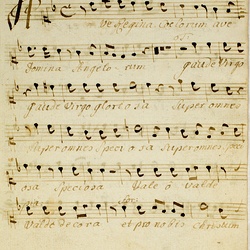 ve Regina coelorum ave
Domina Angelorum gaude Virgo
gaude Virgo gloriosa Super omnes
Super omnes Speciosa Super omnes, spe
osa Speciosa Vale o valde
valde decora et pro nobis Christum